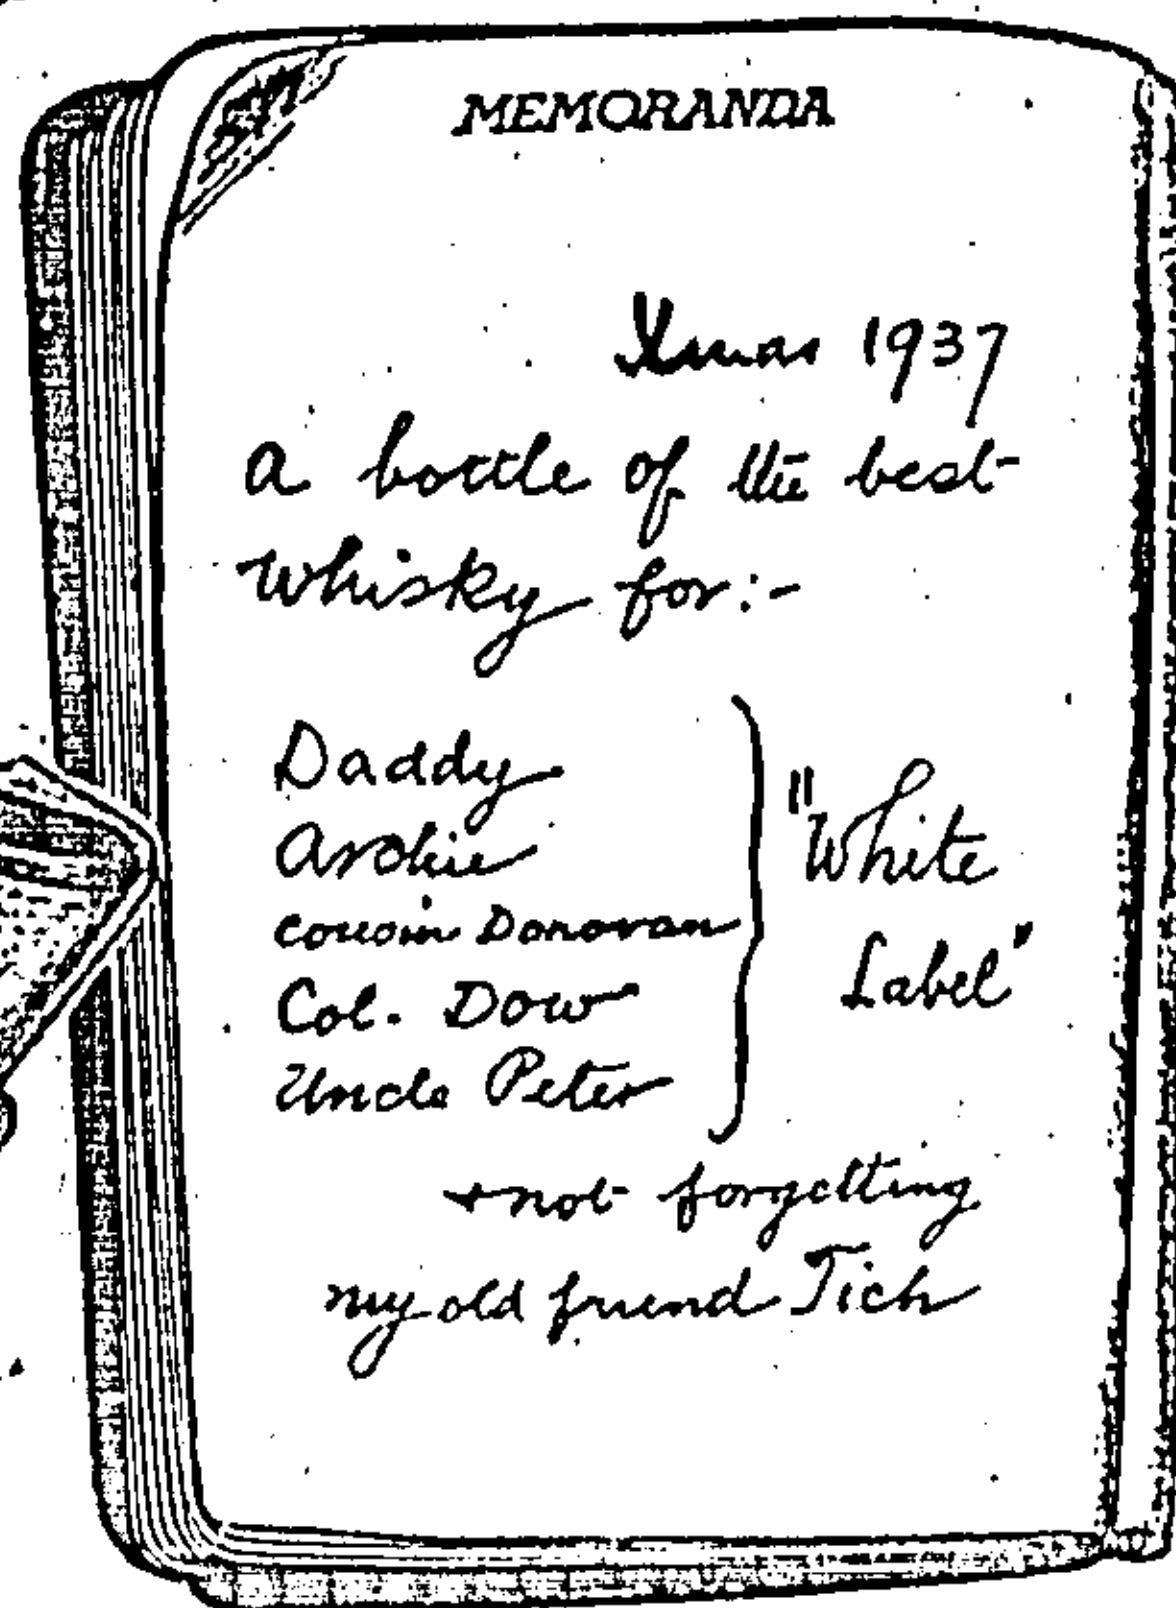 MEMORANDA
Xmas 1937
a bottle of the best
Whisky for:-
Daddy
Archie
Cousin Donovan
Col. Dow
Uncle Peter
"White
Label"
+ not forgetting
my old friend Tich